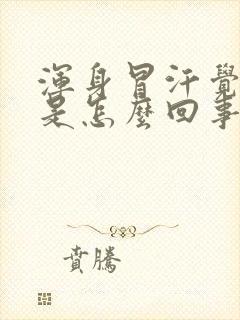 渾身冒汗覺
是怎麼回事
賁騰